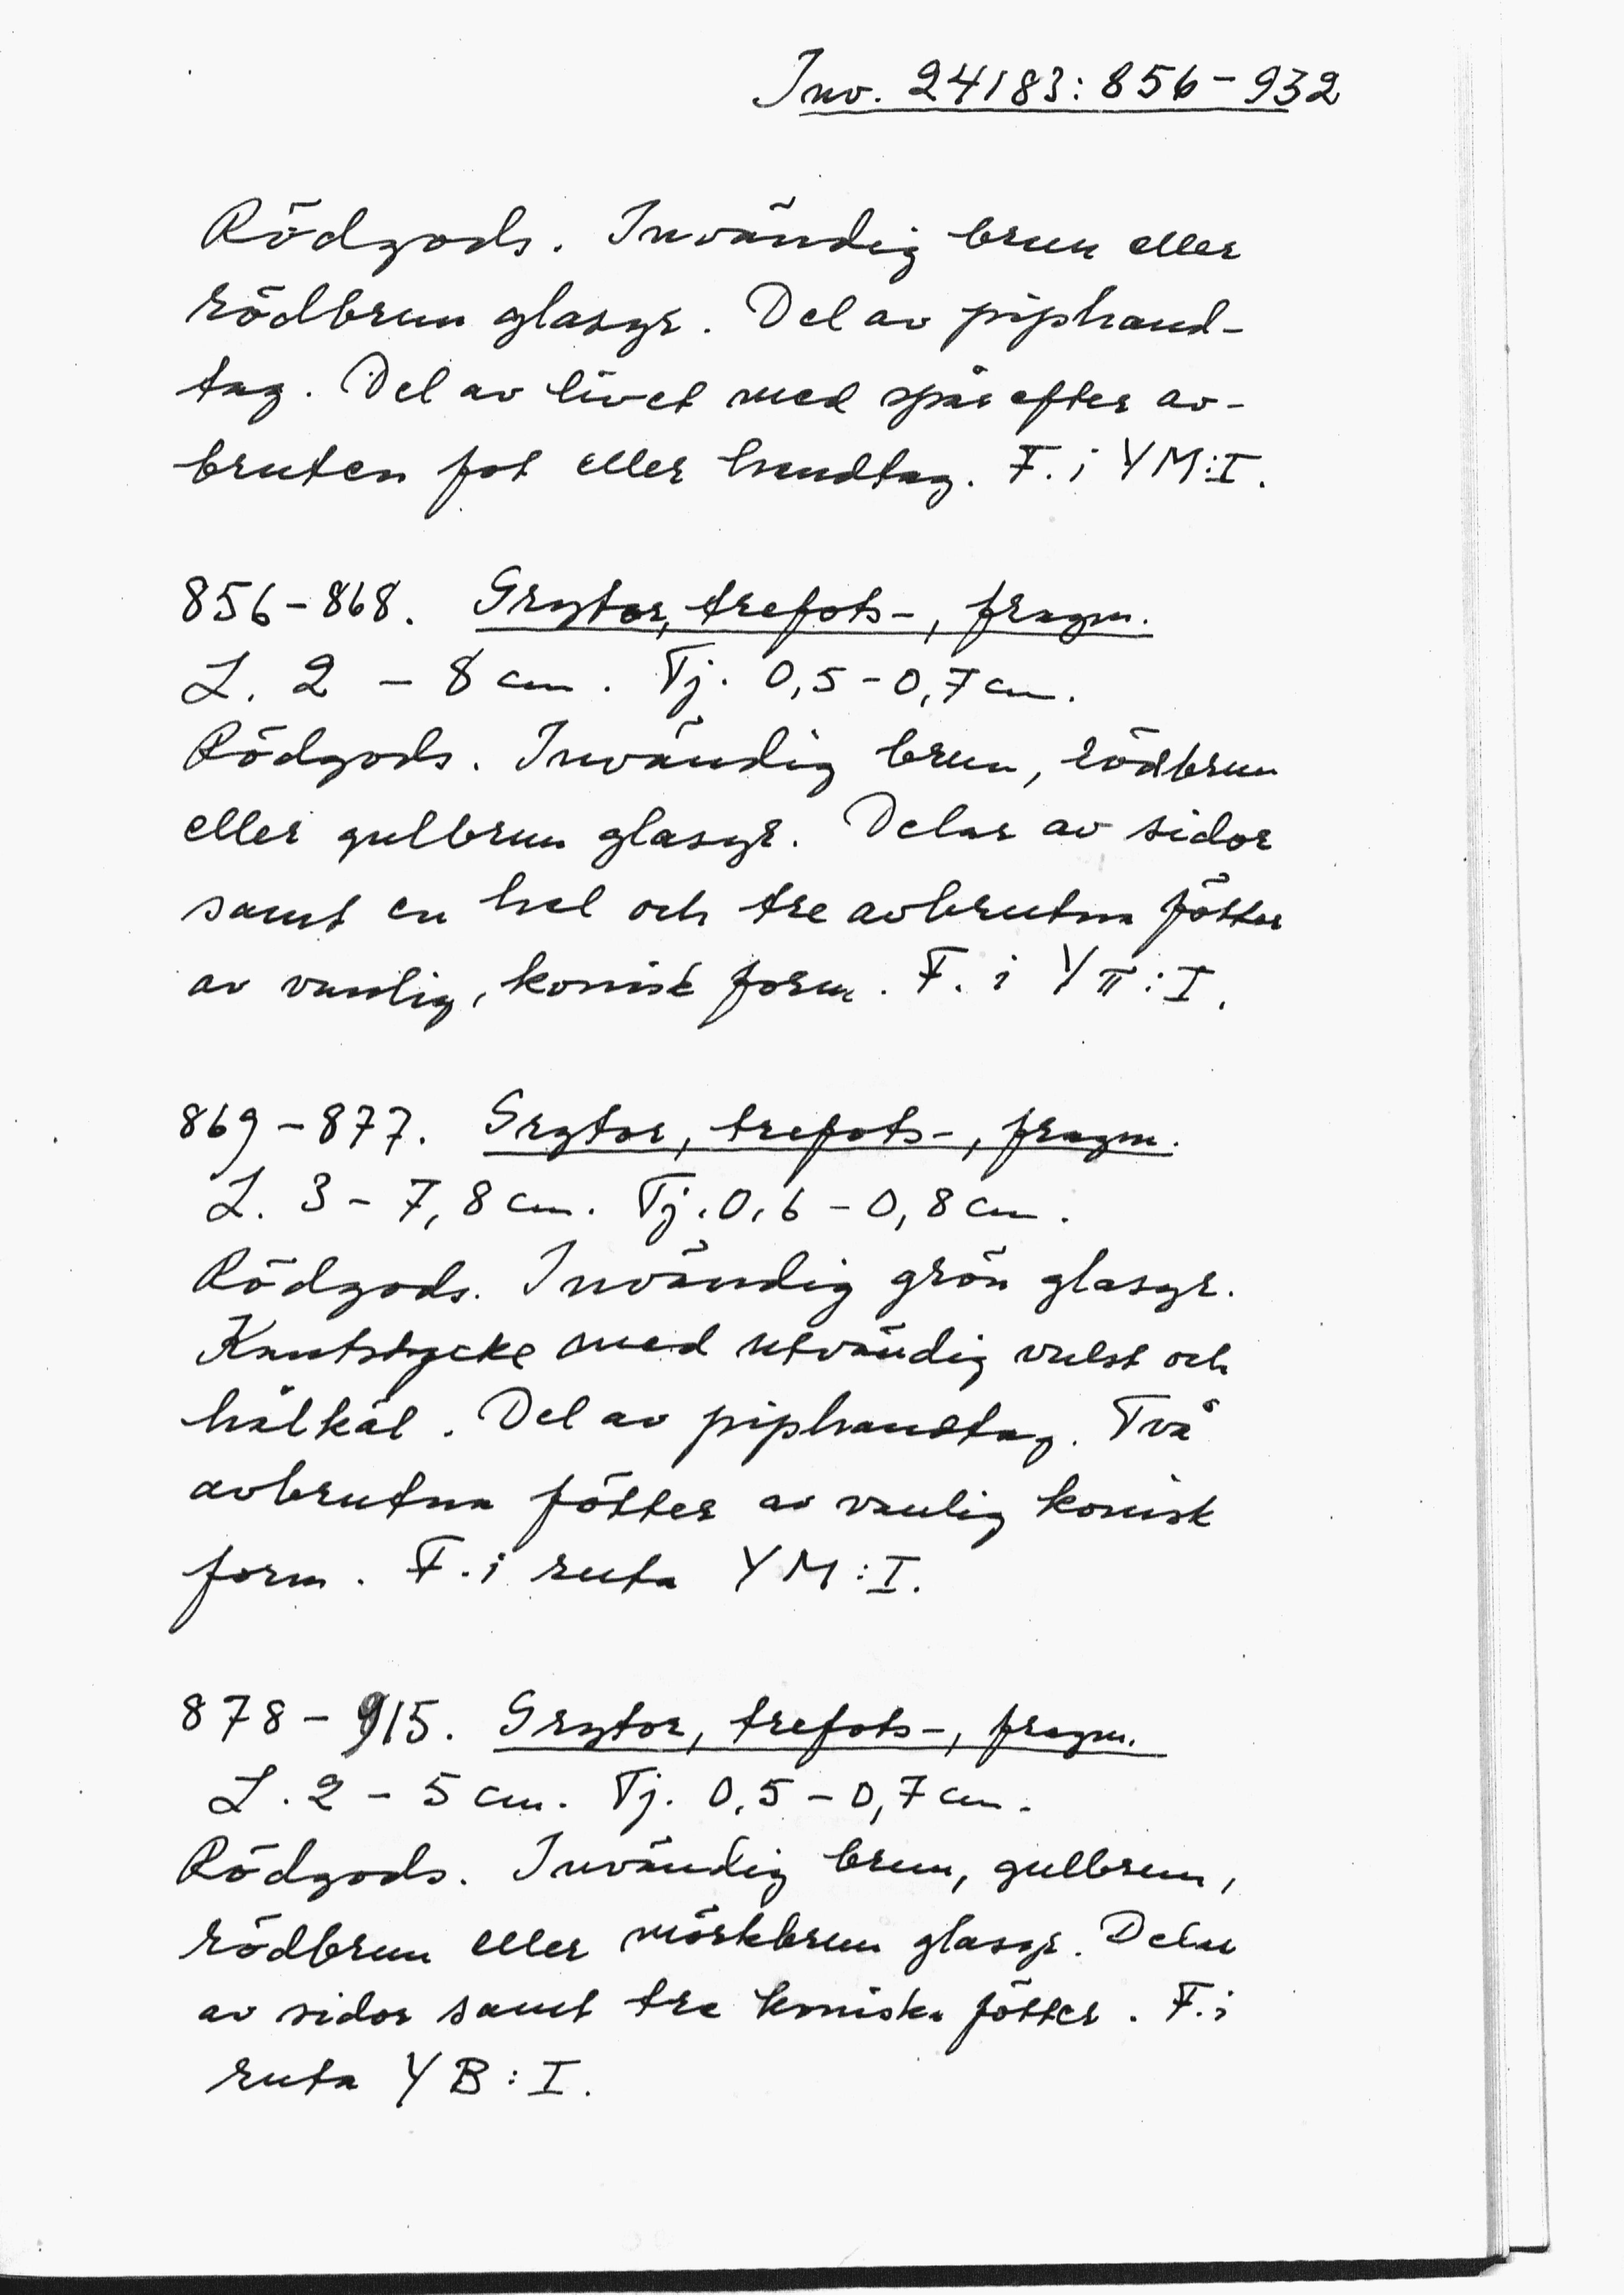 Inv. 24183:856-932
Rödgods. Invändig brun eller
rödbrun glasyr. Del av piphand-
tag. Del av livet med spår efter av-
bruten fot eller handtag. F. i YM:I.
856-868. Grytor, trefots-, fragm.
L. 2 - 8 cm. Tj. 0,5-0,7 cm.
Rödgods. Invändig brun, rödbrun
eller gulbrun glasyr. Delar av sidor
samt en hel och tre avbrutna fötter
av vanlig, konisk form. F. i Yπ:I.
869-877. Grytor, trefots-, fragm.
L. 3 - 7,8 cm. Tj. 0,6 - 0,8 cm.
Rödgods. Invändig grön glasyr.
Kantstycke med utvändig vulst och
hålkäl. Del av piphandtag. Två
avbrutna fötter av vanlig konisk
form. F. i ruta YM:I.
878-915. Grytor, trefots-, fragm.
L. 2 - 5 cm. Tj. 0,5 - 0,7 cm.
Rödgods. Invändig brun, gulbrun,
rödbrun eller mörkbrun glasyr. Delar
av sidor samt tre koniska fötter. F. i
ruta YB:I.